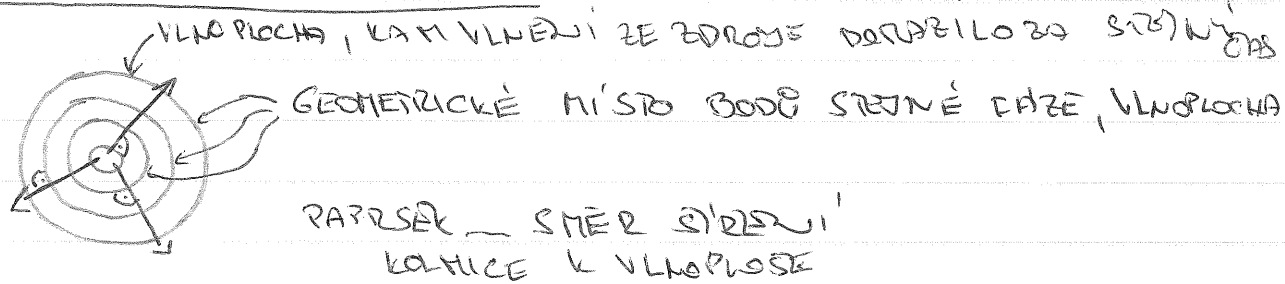 VLNOPLOCHA, KAM VLNĚNÍ ZE ZDROJE DORAZILO ZA STEJNÝ ČAS
GEOMETRICKÉ MÍSTO BODŮ STEJNÉ FÁZE, VLNOPLOCHA
PAPRSEK — SMĚR ŠÍŘENÍ
KOLMICE K VLNOPLOŠE